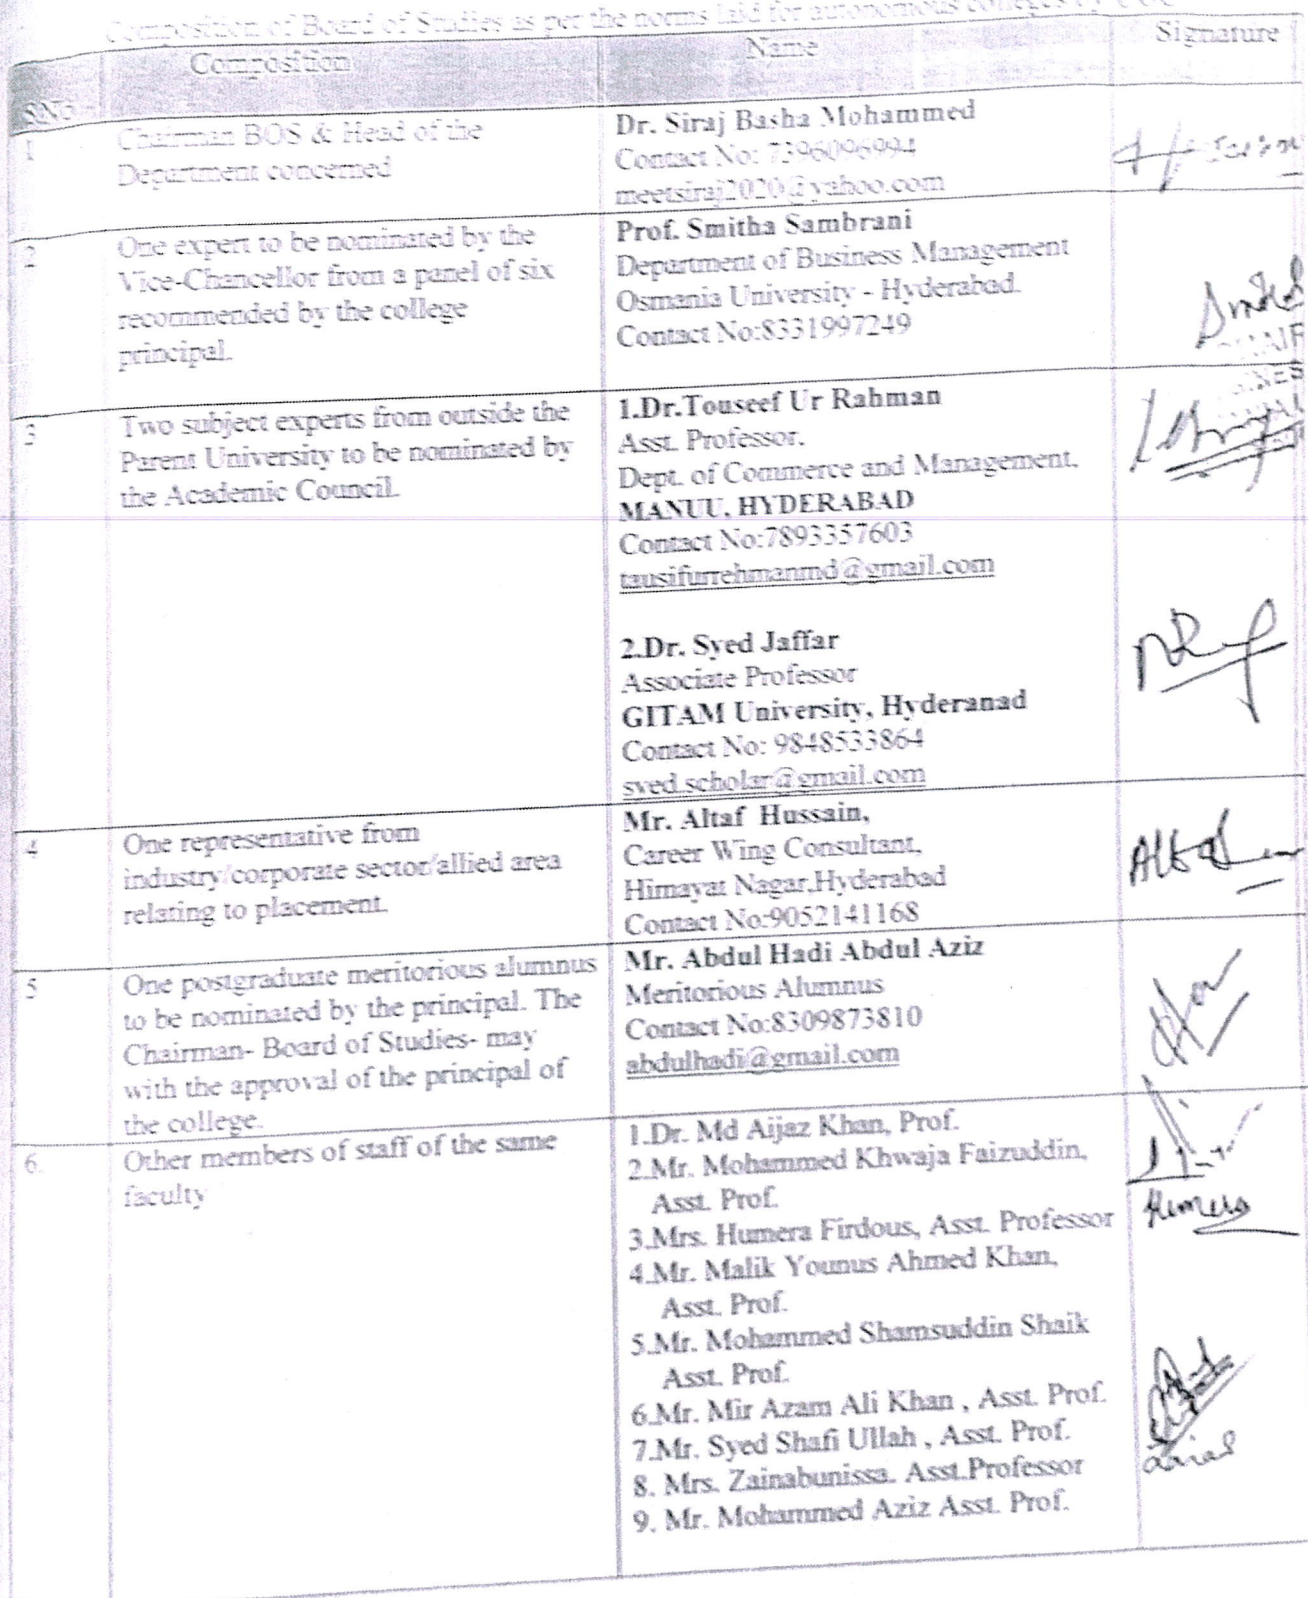 Composition of Board of Studies as per the norms laid for autonomous colleges by UGC
S.No
Composition
Name
Signature
1
Chairman BOS & Head of the
Department concerned
Dr. Siraj Basha Mohammed
Contact No: 7396096994
meetsiraj2020@yahoo.com
2
One expert to be nominated by the
Vice-Chancellor from a panel of six
recommended by the college
principal.
Prof. Smitha Sambrani
Department of Business Management
Osmania University - Hyderabad.
Contact No:8331997249
3
Two subject experts from outside the
Parent University to be nominated by
the Academic Council.
1.Dr.Touseef Ur Rahman
Asst. Professor.
Dept. of Commerce and Management.
MANUU, HYDERABAD
Contact No:7893357603
tausifurrehmanmd@gmail.com
2.Dr. Syed Jaffar
Associate Professor
GITAM University, Hyderanad
Contact No: 9848533864
syed.scholar@gmail.com
4
One representative from
industry/corporate sector/allied area
relating to placement.
Mr. Altaf Hussain,
Career Wing Consultant,
Himayat Nagar,Hyderabad
Contact No:9052141168
5
One postgraduate meritorious alumnus
to be nominated by the principal. The
Chairman- Board of Studies- may
with the approval of the principal of
the college.
Mr. Abdul Hadi Abdul Aziz
Meritorious Alumnus
Contact No:8309873810
abdulhadi@gmail.com
6.
Other members of staff of the same
faculty
1.Dr. Md Aijaz Khan, Prof.
2.Mr. Mohammed Khwaja Faizuddin,
Asst. Prof.
3.Mrs. Humera Firdous, Asst. Professor
4.Mr. Malik Younus Ahmed Khan,
Asst. Prof.
5.Mr. Mohammed Shamsuddin Shaik
Asst. Prof.
6.Mr. Mir Azam Ali Khan , Asst. Prof.
7.Mr. Syed Shafi Ullah , Asst. Prof.
8. Mrs. Zainabunissa. Asst.Professor
9. Mr. Mohammed Aziz Asst. Prof.